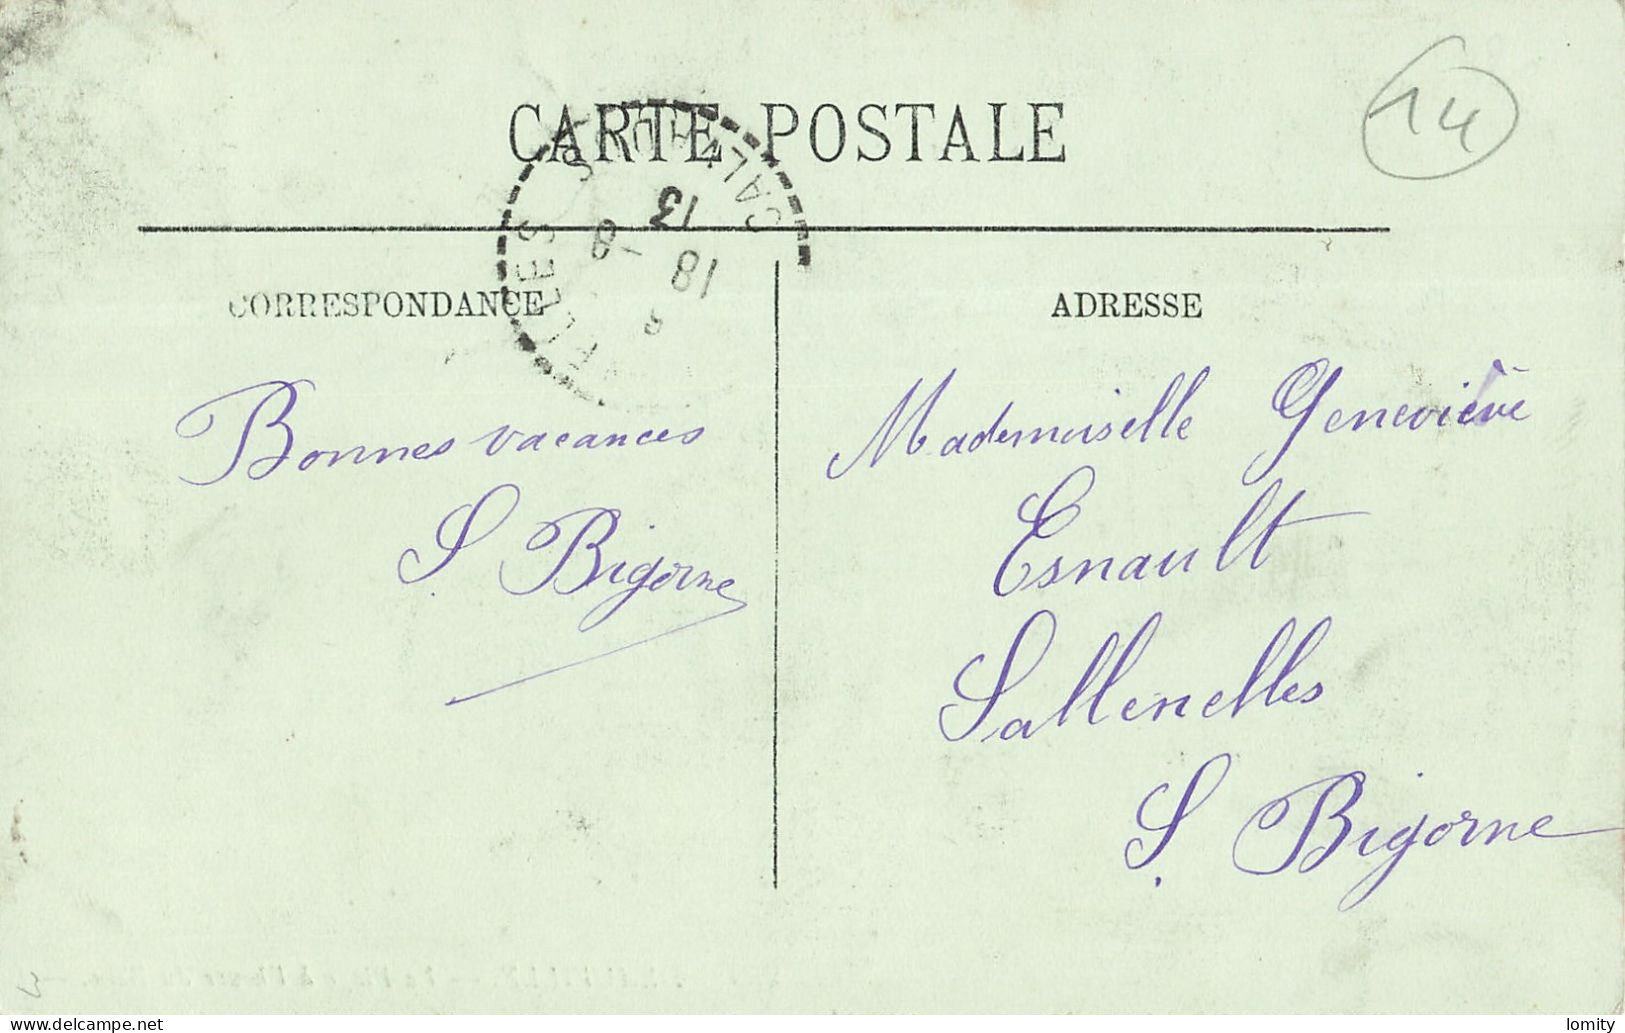 CARTE POSTALE
14
18 -8
13
CORRESPONDANCE
ADRESSE
Bonnes vacances
S. Bigorne
Mademoiselle Geneviève
Esnault
Sallenelles
S. Bigorne
delcampe.net
lomity